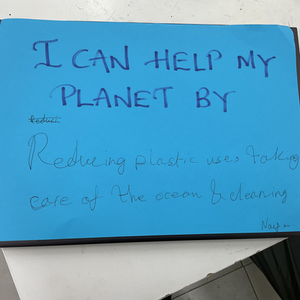 I CAN HELP MY
PLANET BY
Reducing plastic use, taking
care of the ocean & cleaning.